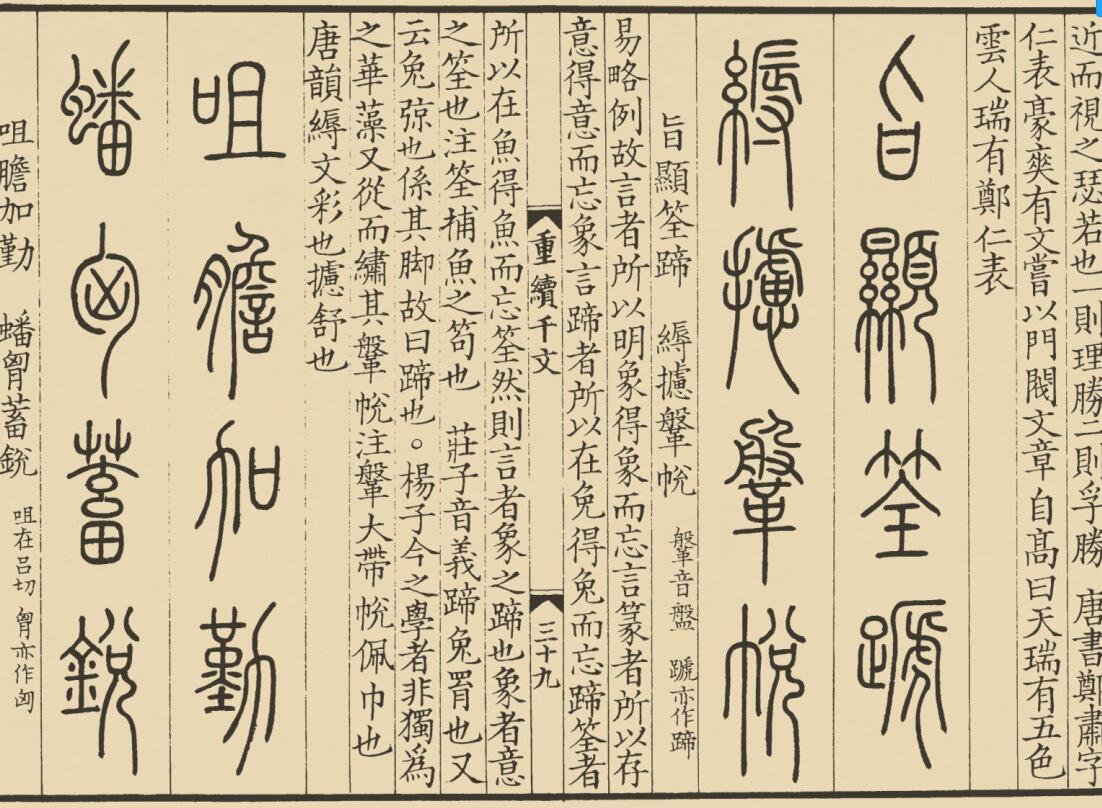 近而視之瑟若也一則理勝二則孚勝 唐書鄭肅字
仁表豪爽有文嘗以門閥文章自高曰天瑞有五色
雲人瑞有鄭仁表
旨顯筌蹏
縟攄鞶帨
旨顯筌蹄 縟攄鞶帨 鞶音盤 蹏亦作蹄
易略例故言者所以明象得象而忘言篆者所以存
意得意而忘象言蹄者所以在兔得兔而忘蹄筌者
重續千文 三十九
所以在魚得魚而忘筌然則言者象之蹄也象者意
之筌也注筌捕魚之笱也 莊子音義蹄兔罥也又
云兔弶也係其脚故曰蹄也。楊子今之學者非獨爲
之華藻又從而繡其鞶帨注鞶大帶帨佩巾也
唐韻縟文彩也攄舒也
咀膽加勤
蟠匈蓄銳
咀膽加勤 蟠胷蓄銳 咀在呂切 胷亦作匈